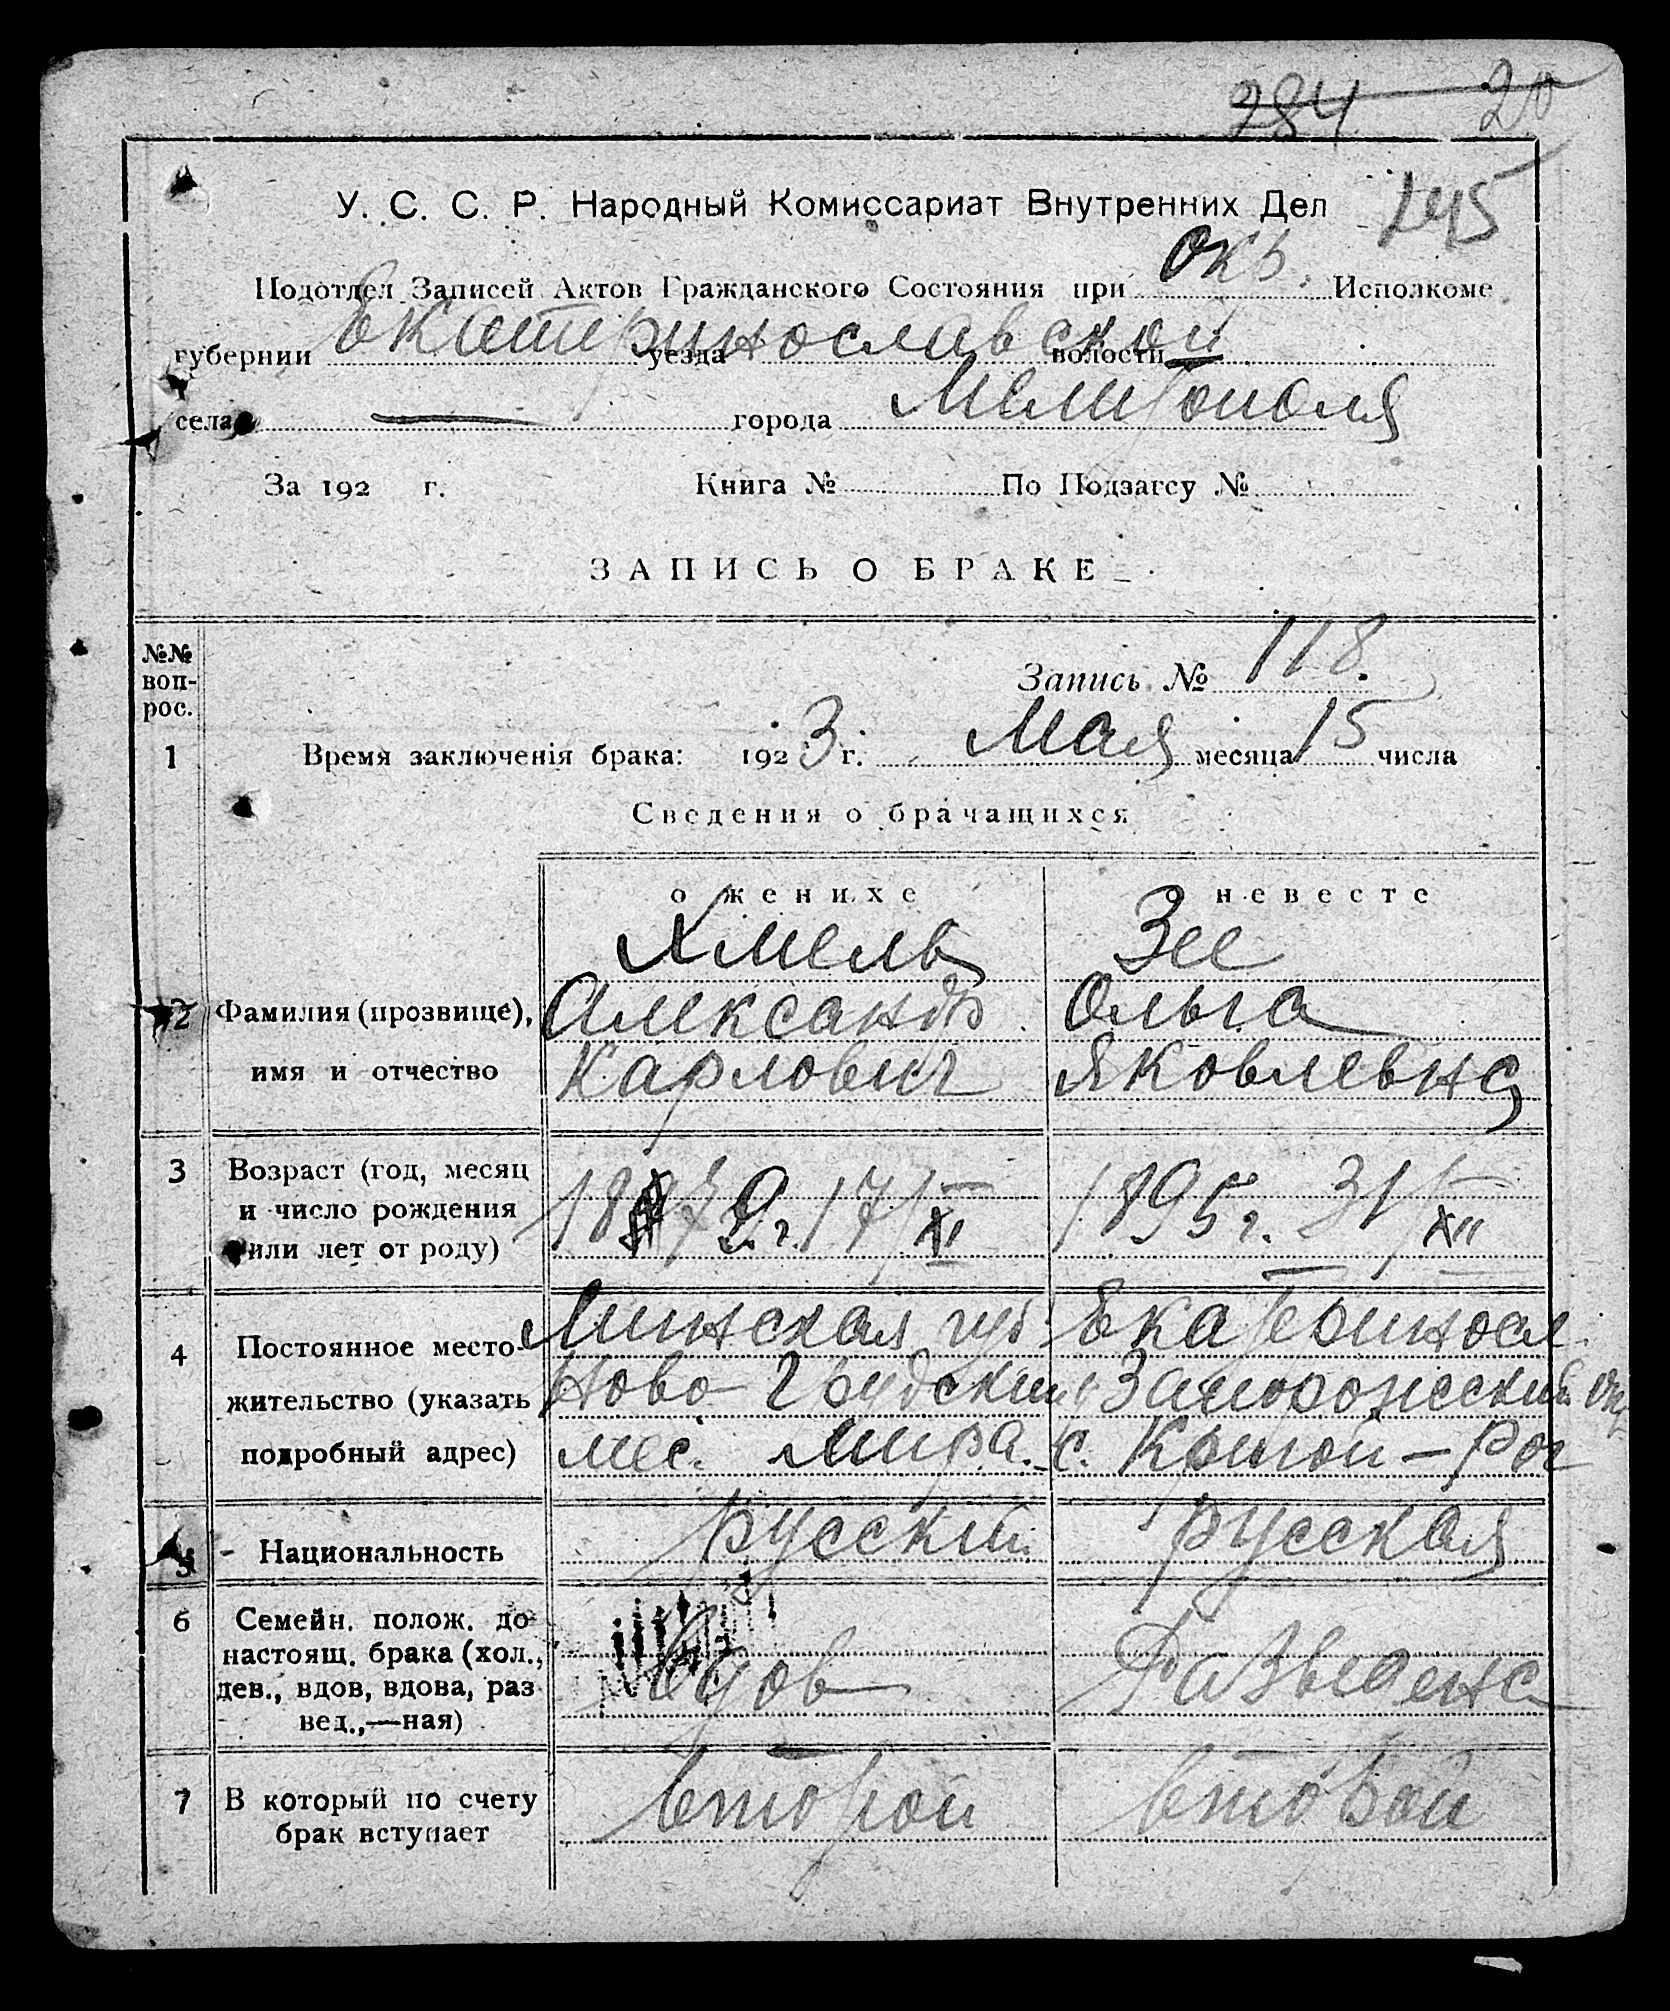 284 20
У. С. С. Р. Народный Комиссариат Внутренних Дел 245
Подотдел Записей Актов Гражданского Состояния при Окр. Исполкоме
губернии Екатеринославской уезда волости —
села — города Мелитополя
За 192 г. Книга № По Подзагсу №
ЗАПИСЬ О БРАКЕ
№№ воп-рос.
Запись № 118.
1 Время заключенія брака: 1923 г. Мая месяца 15 числа
Сведения о брачащихся
о женихе о невесте
Хмель Зее
2 Фамилия (прозвище), Александр Ольга
имя и отчество Карлович Яковлевна
3 Возраст (год, месяц
и число рождения 1879 г. 17/XI 1895 г. 31/XII
или лет от роду)
Минская губ. Екатериносл.
4 Постоянное место-
жительство (указать Ново-Грудский Запорожский Окр.
подробный адрес) мес. Мира. с. Кривой-Рог
5 - Национальность русский русская
6 Семейн. полож. до
настоящ. брака (хол.,
дев., вдов, вдова, раз вдов Разведена
вед.,—ная)
7 В который по счету второй второй
брак вступает